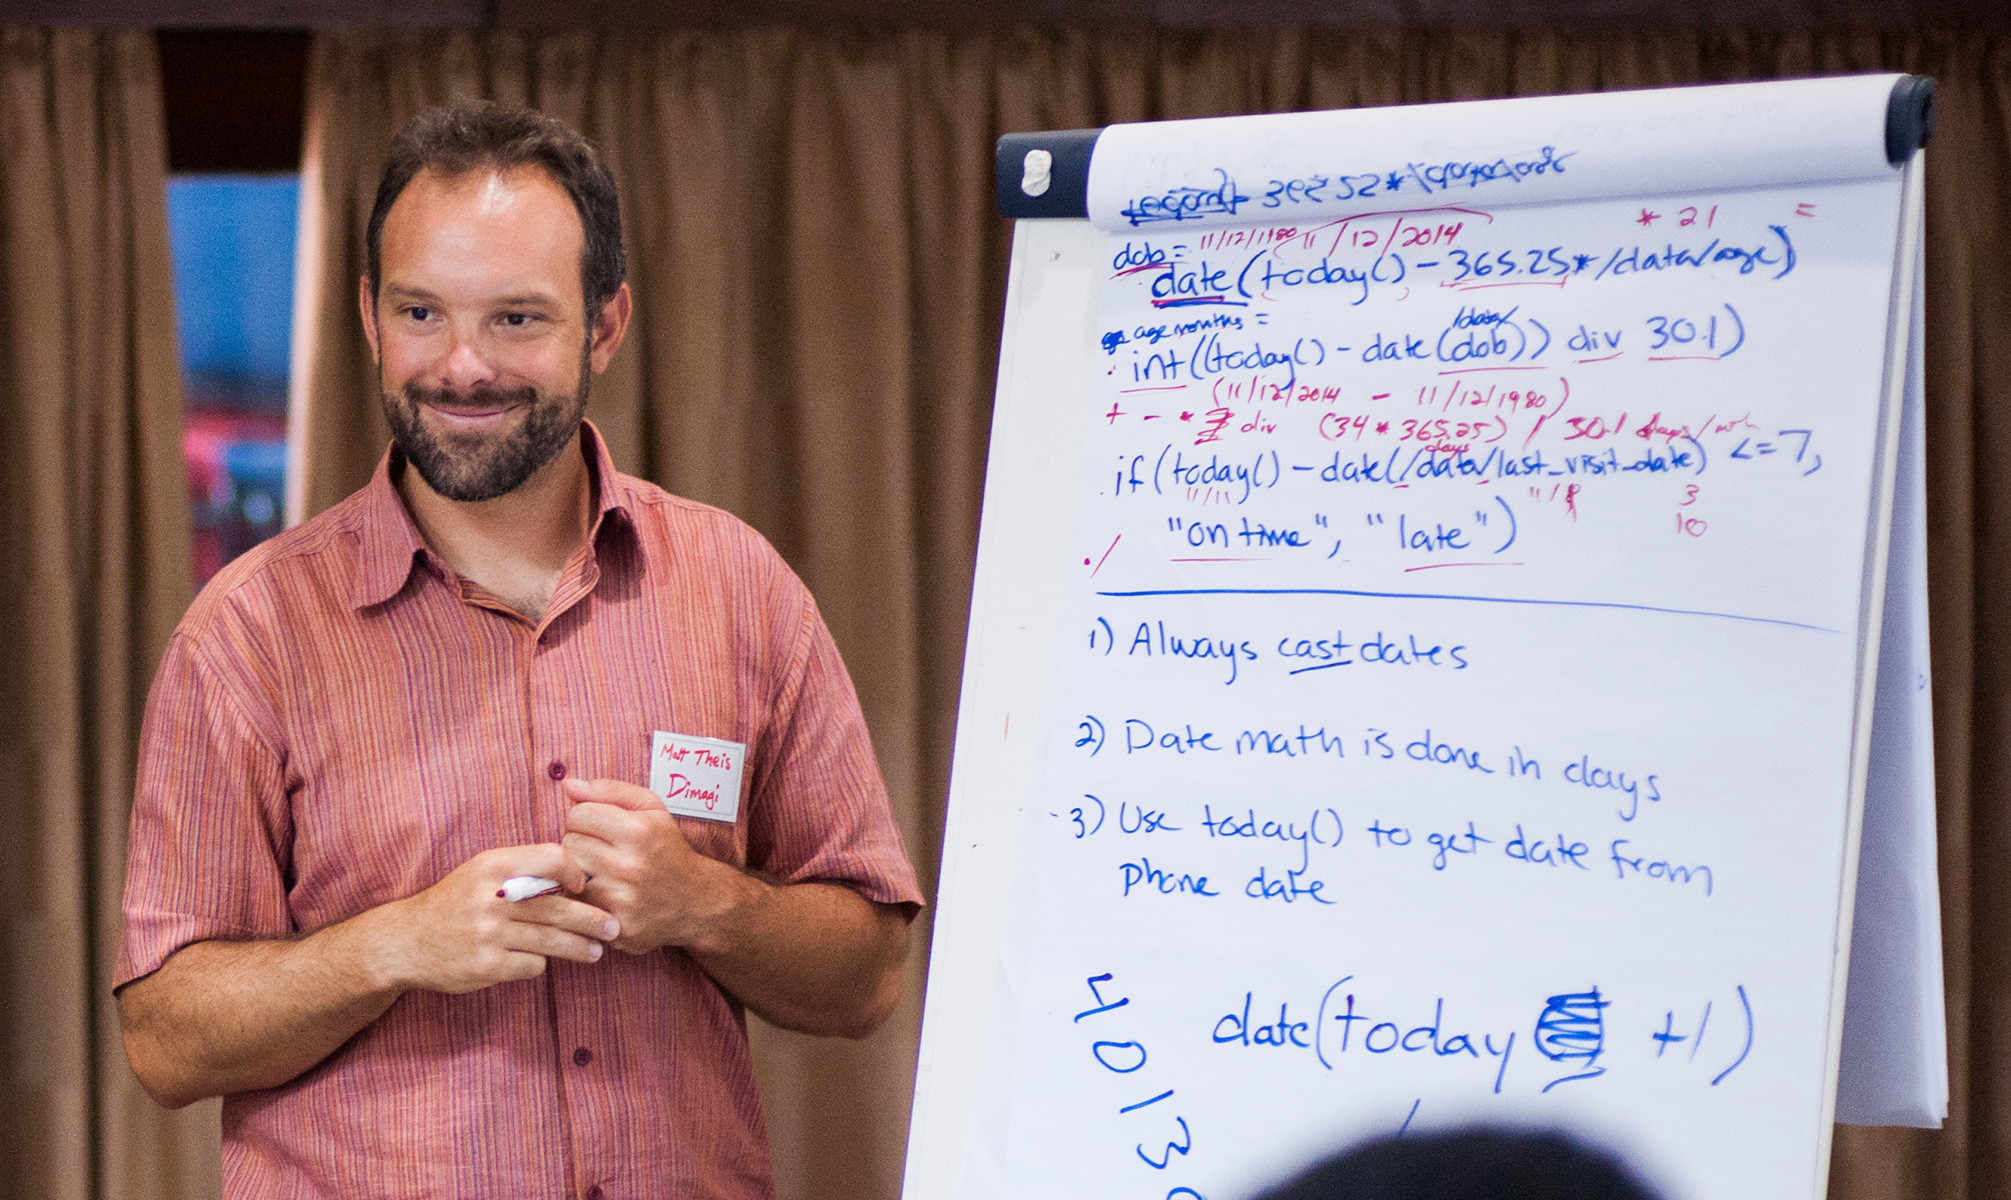 Matt Theis
Dimagi
* 21 =
dob = 11/12/1980 11/12/2014
date(today() - 365.25 * /data/age)
age months =
/data/
int((today() - date(dob)) div 30.1)
(11/12/2014 - 11/12/1980)
+ - * div (34 * 365.25) / 30.1 days/mth
days
if(today() - date(/data/last_visit_date) <= 7,
11/11 11/8 3
"on time", "late") 10
1) Always cast dates
2) Date math is done in days
3) Use today() to get date from
Phone date
date(today +1)